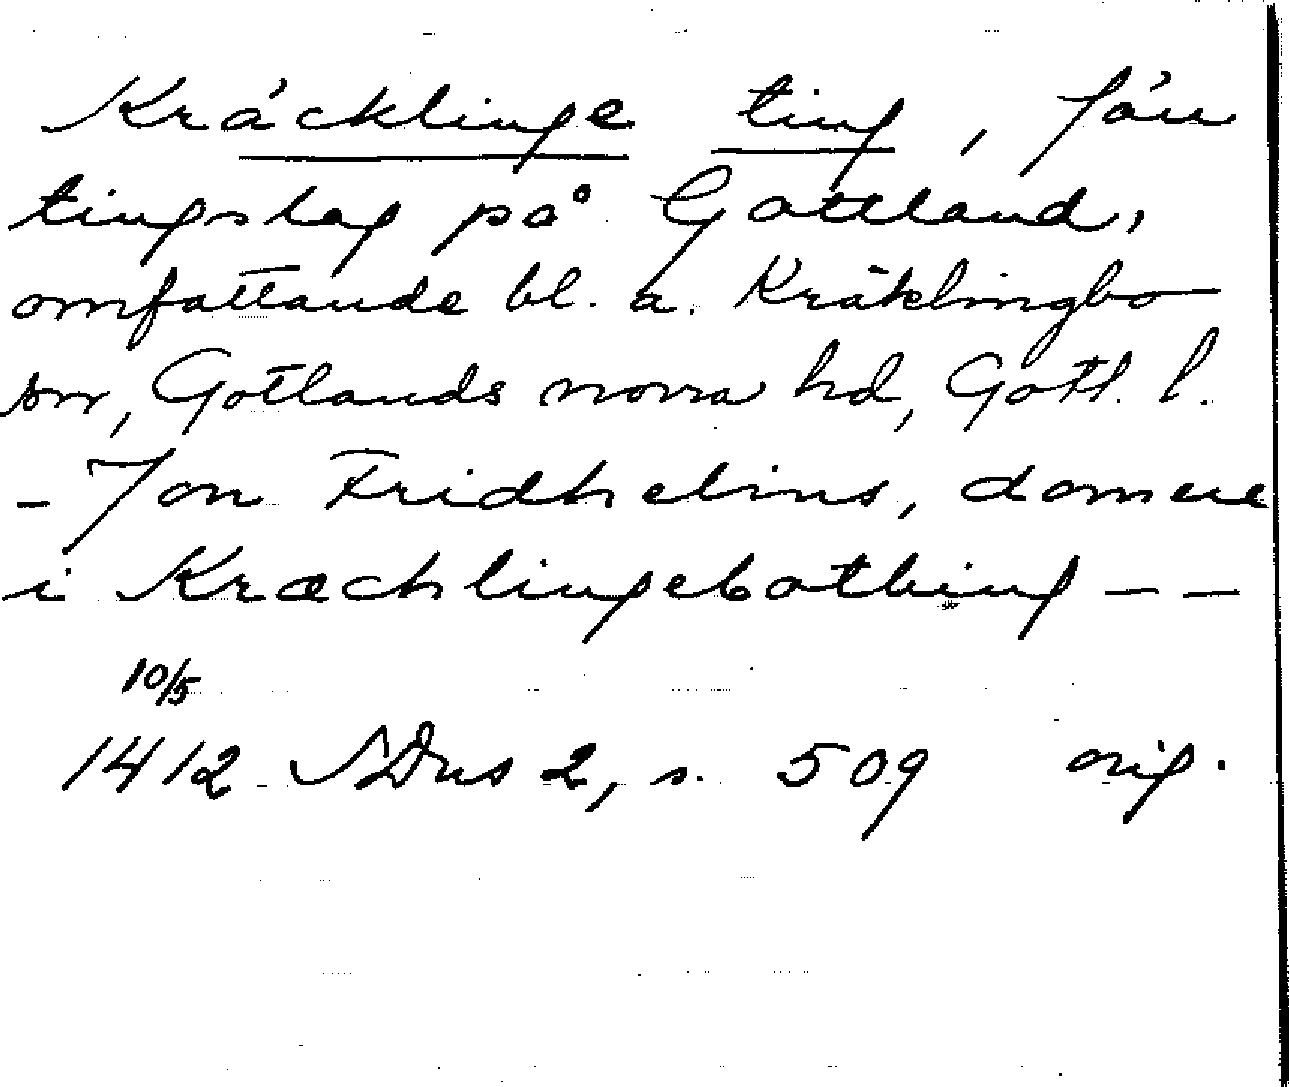 Kräcklinge ting, förr
tingslag på Gottland,
omfattande bl. a. Kräklingbo
sn, Gotlands norra hd, Gotl. l.
- Jon Fridhelms, domere
i Kræchlingebothing - -
10/5
1412 SDns 2, s. 509 orig.